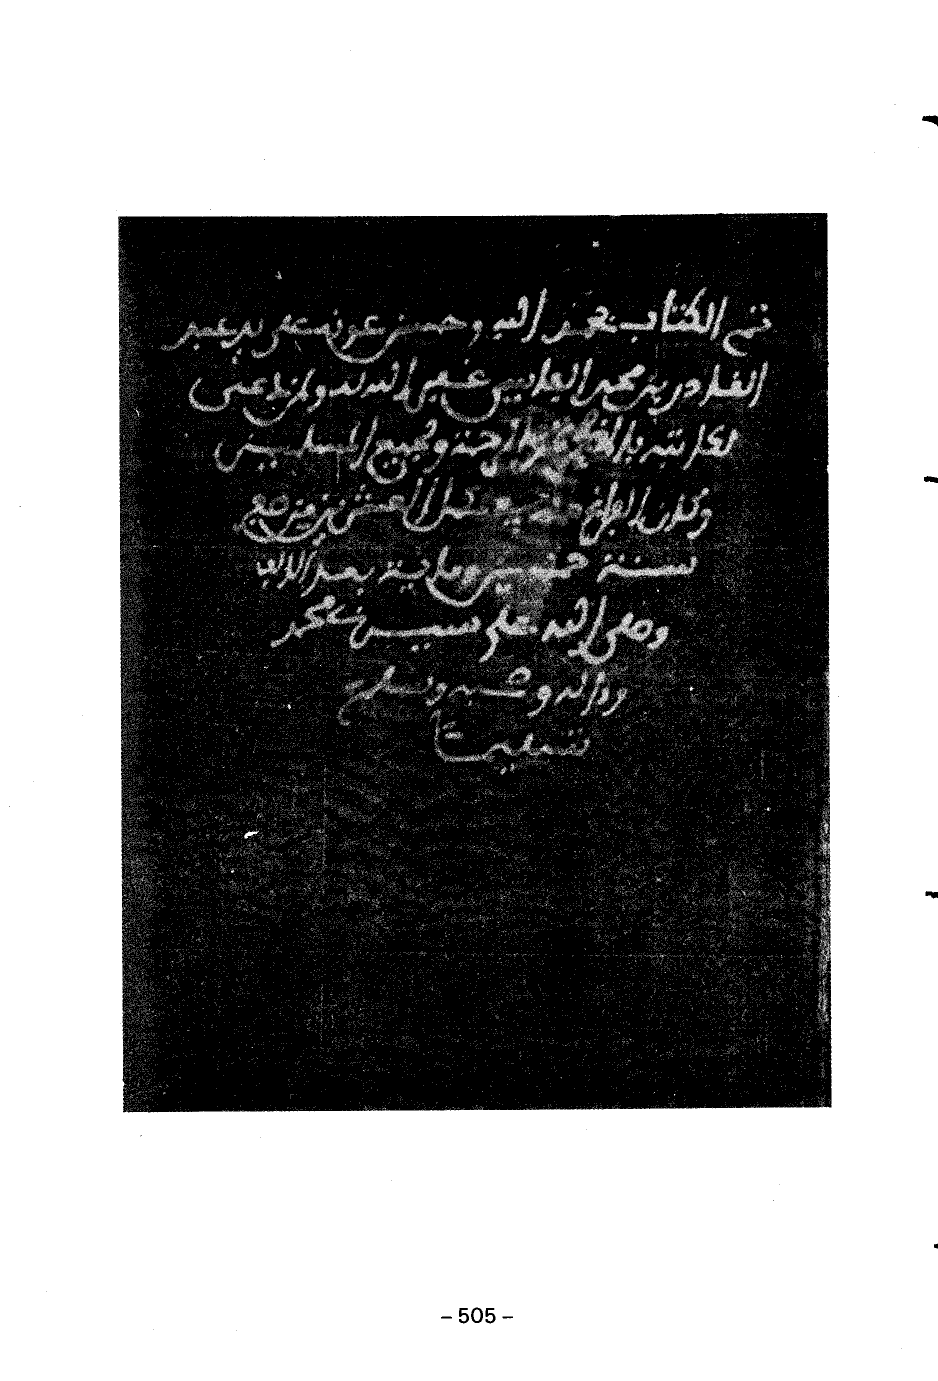 تم الكتاب بحمد الله وحسن عونه على يد عبد
القادر بن محمد غفر الله له ولمن دعى
لكاتبه والرحمة ولجميع المسلمين
وكان الفراغ منه يوم العشرين من صفر
سنة خمسين وماية بعد الالف
وصلى الله على سيدنا محمد
وءاله وصحبه وسلم
تسليما
- 505 -